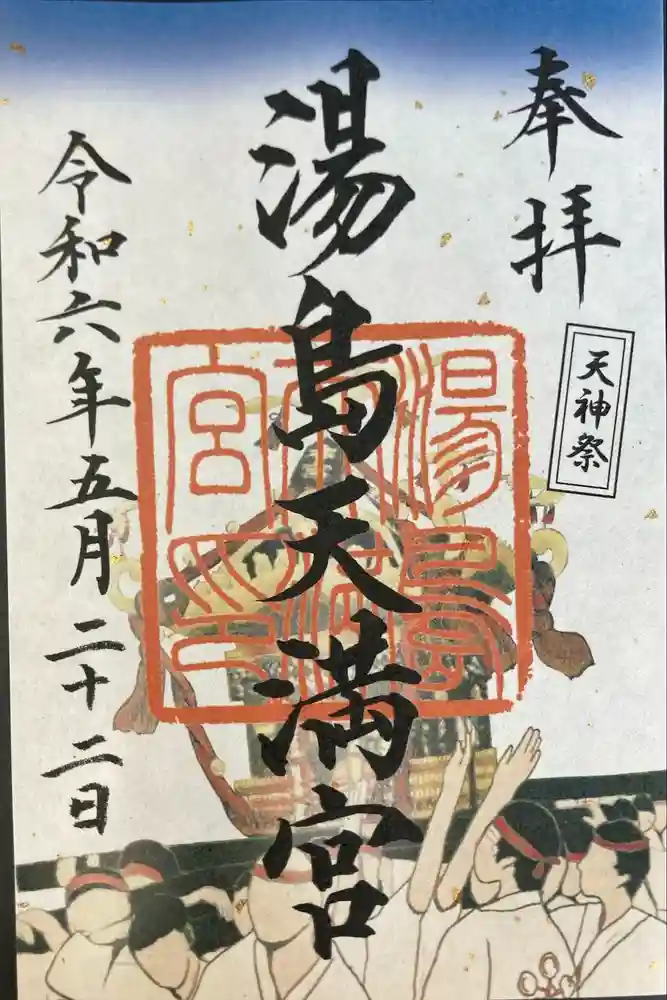 奉拝
天神祭
湯島天満宮
湯島天満宮印
令和六年五月二十二日